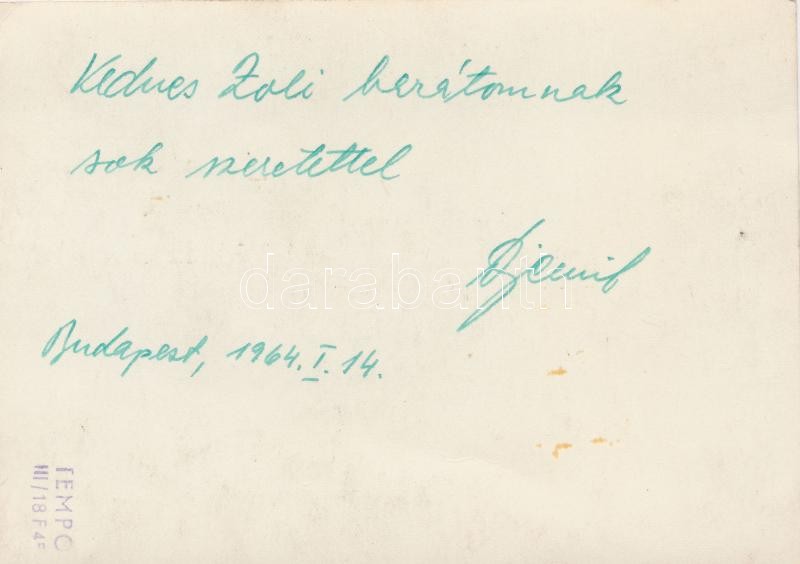 Kedves Zoli barátomnak
sok szeretettel
Budapest, 1964. I. 14.
darabanth
TEMPO
III/18 F4F